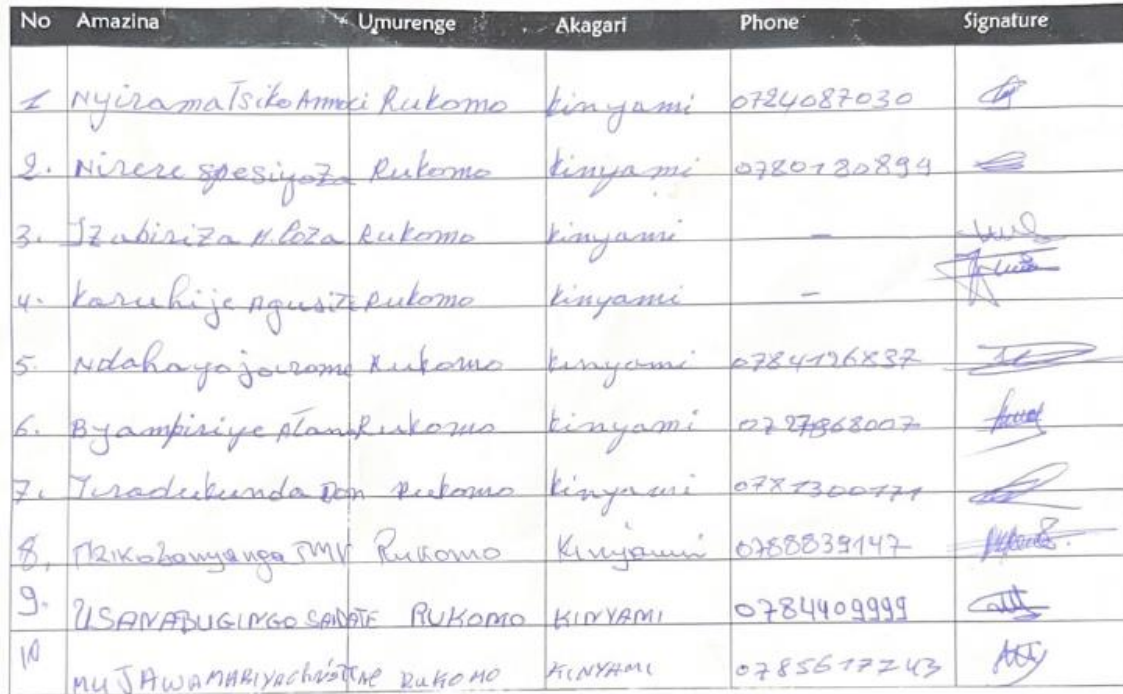 No Amazina Umurenge Akagari Phone Signature
1 Nyiramatsiko Rukomo kinyami 0724087030
2. Nirere spesiyoza Rukomo kinyami 0780180899
3. Izabiriza M.Roza Rukomo kinyami -
4. Karuhije Agusite Rukomo kinyami -
5. Ndahayo jarome Rukomo kinyami 0784126837
6. Byampiriye Rukomo kinyami
7. Turadukunda Don Rukomo kinyami 0781300171
8. JMV Rukomo Kinyami 0788839147
9. USANABUGINGO SADATE RUKOMO KINYAMI 0784409999
10 MUJAWAMARIYA christine RUKOMO KINYAMI 0785617243